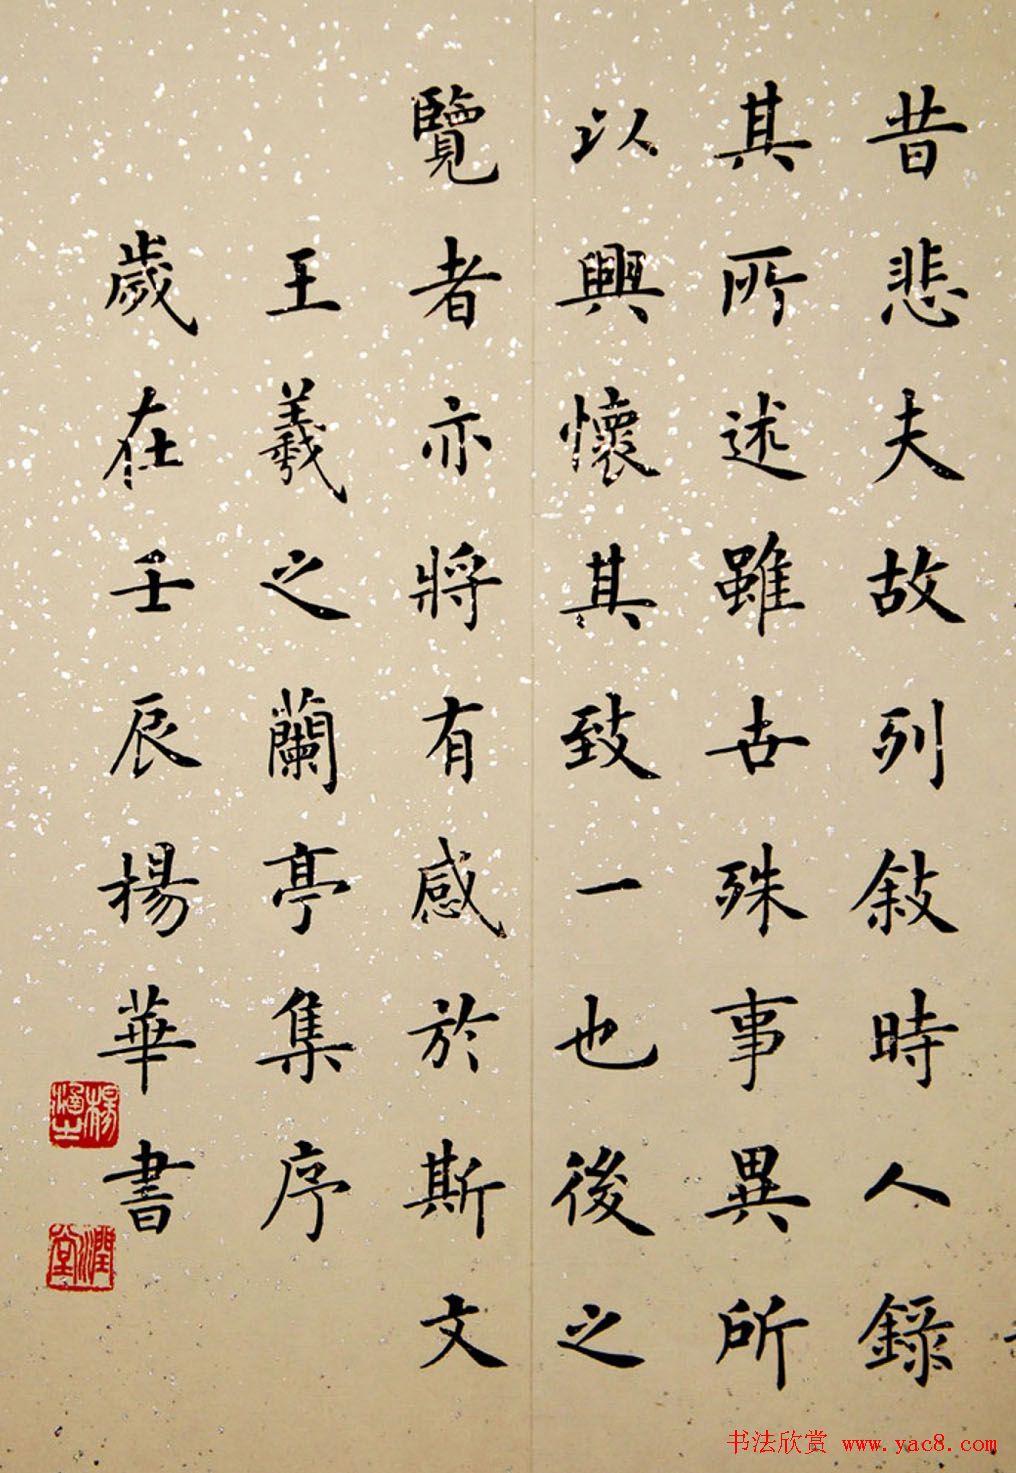 昔悲夫故列敘時人錄
其所述雖世殊事異所
以興懷其致一也後之
覽者亦將有感於斯文
王羲之蘭亭集序
歲在壬辰楊華書
潤堂
书法欣赏 www.yac8.com